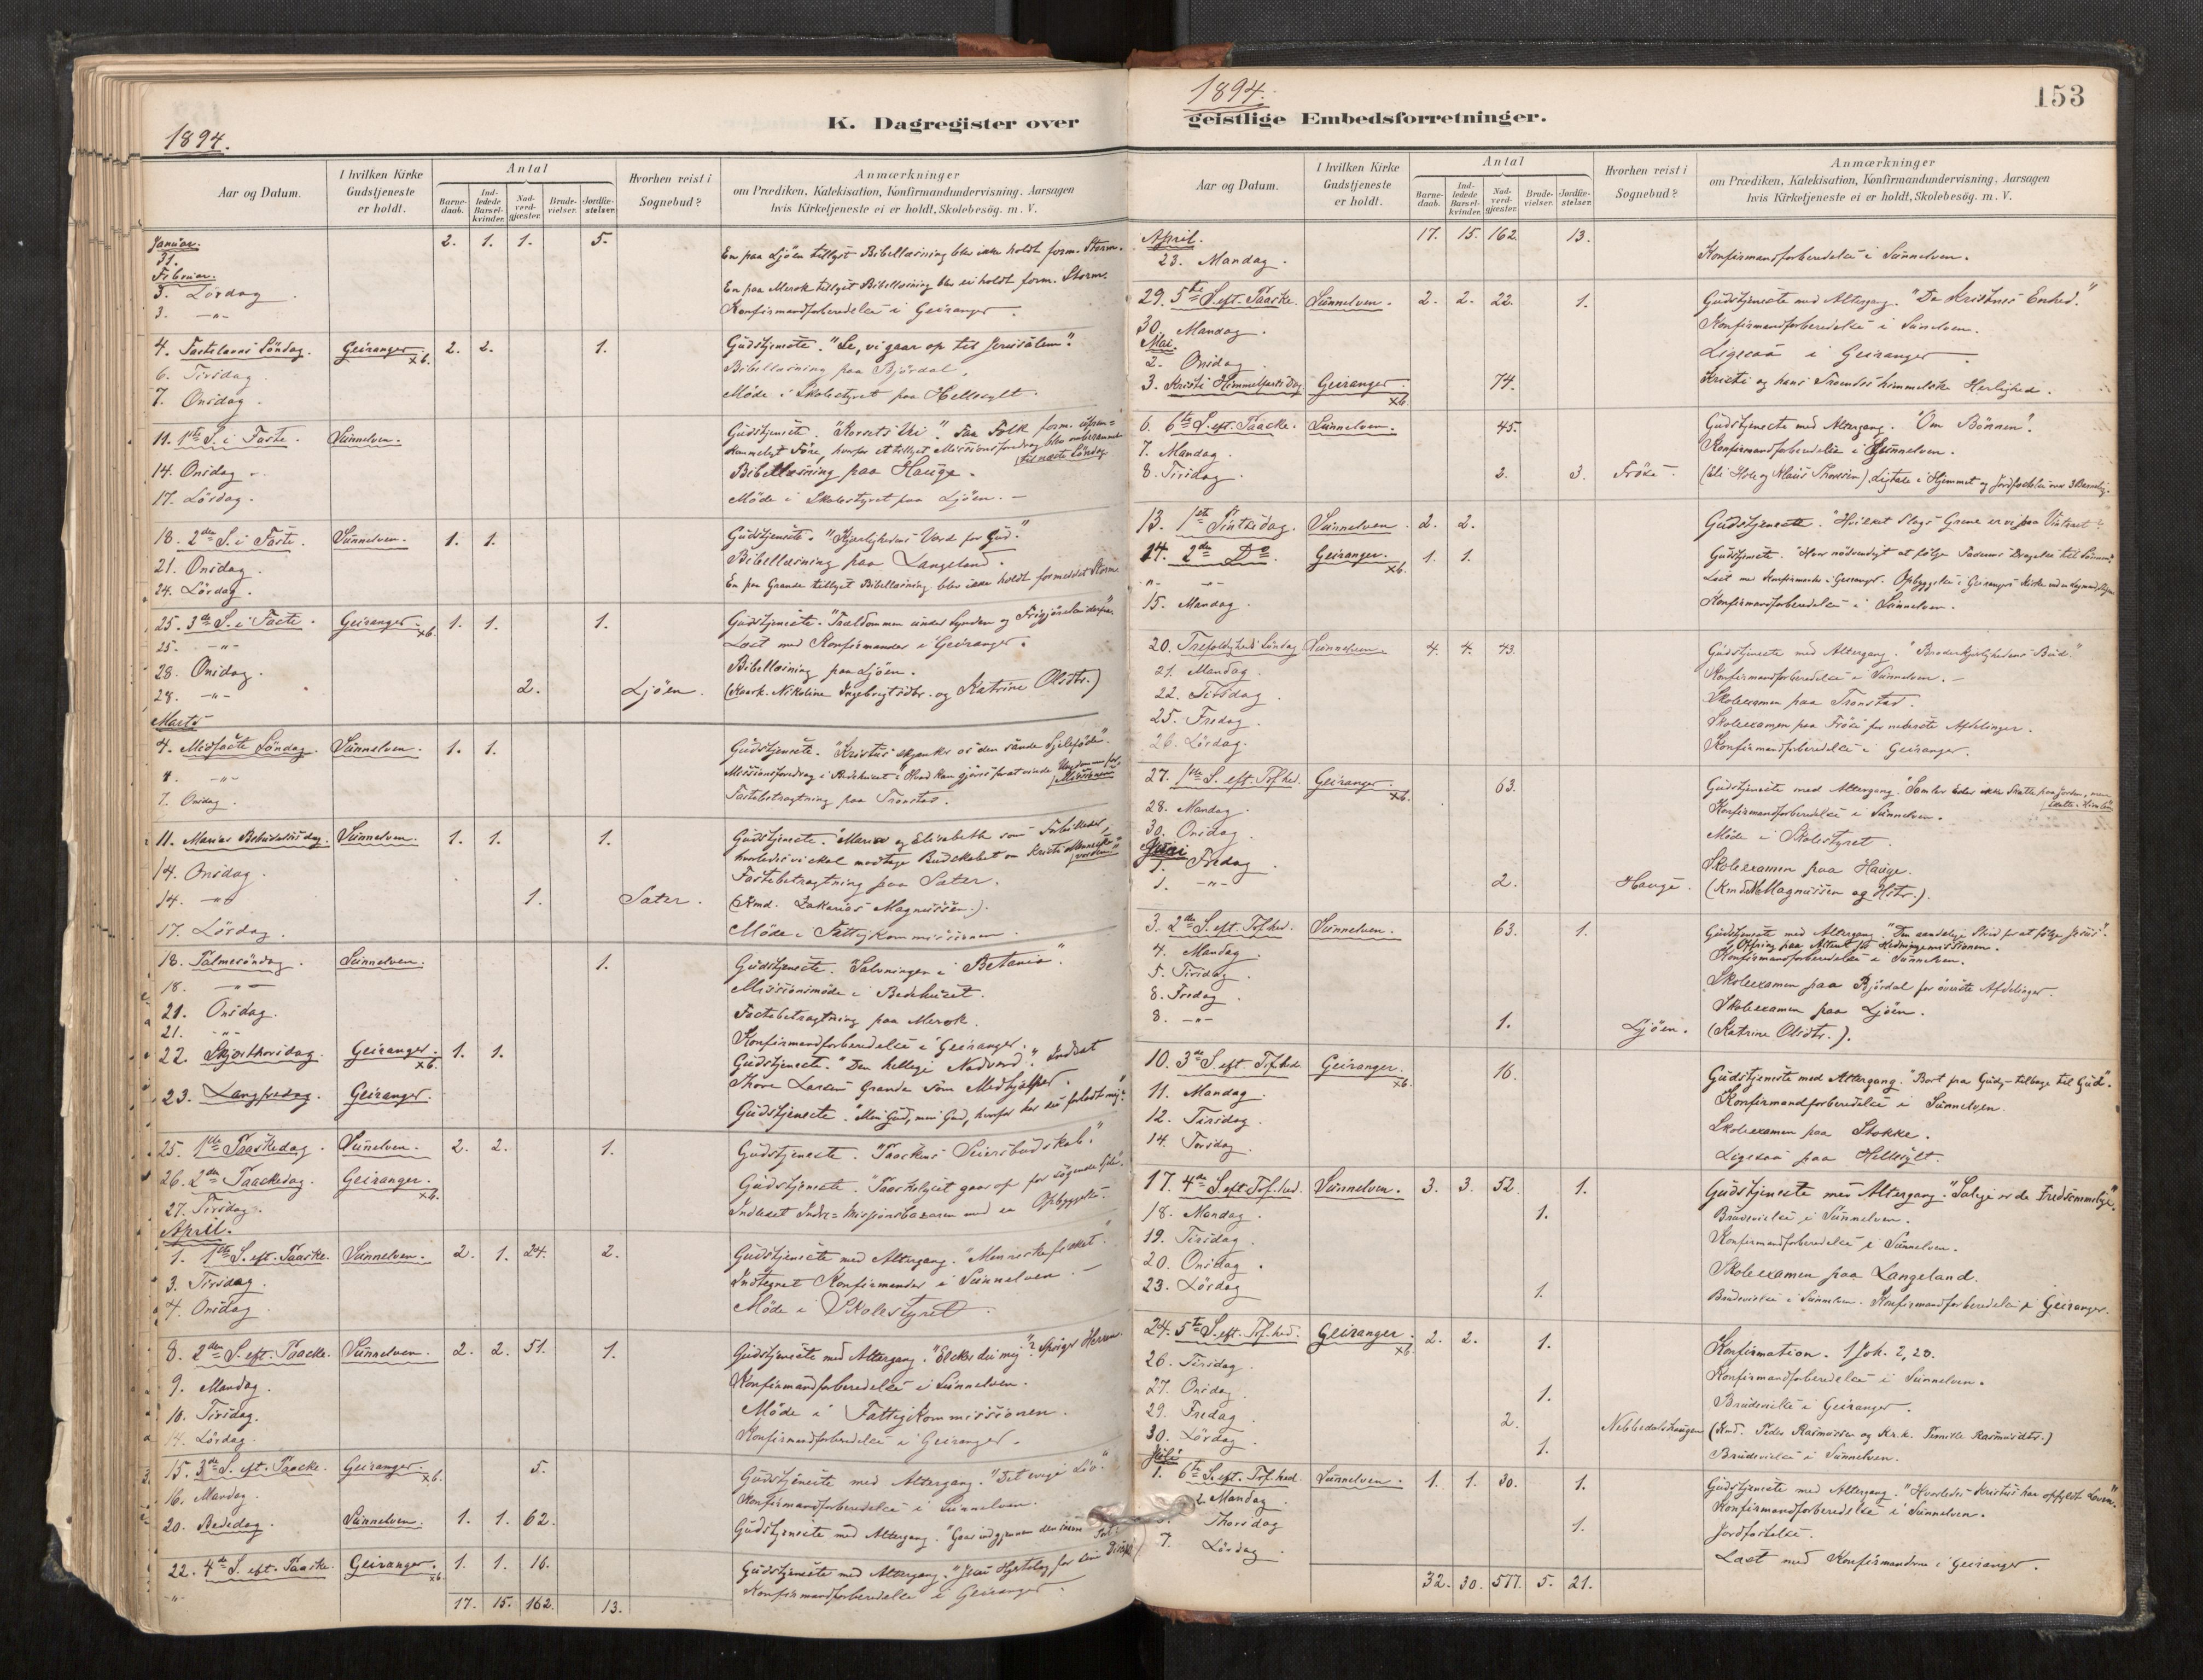 1894.
K. Dagregister over
Aar og Datum.
I hvilken Kirke Gudstjeneste er holdt.
Antal
Barne-daab.
Ind-ledede Barsel-kvinder.
Nad-verd-gjester.
Brude-vielser.
Jordfæ-stelser.
Hvorhen reist i Sognebud?
Anmærkninger
om Prædiken, Katekisation, Konfirmandundervisning. Aarsagen
hvis Kirketjeneste ei er holdt, Skolebesøg. m. V.
Januar. 2. 1. 1. 5.
31. En paa Ljöen tillyst Bibellæsning blev ikke holdt form. Storm.
Februar.
3. Lördag. En paa Merok tillyst Bibellæsning blev ei holdt form. Storm.
3. -"- Konfirmandforberedelse i Geiranger.
4. Fastelavns Söndag. Geiranger. x6. 2. 2. 1. Gudstjeneste. "Se, vi gaar op til Jerusalem".
6. Tirsdag. Bibellæsning paa Björdal.
7. Onsdag. Möde i Skolestyret paa Hellesylt.
11. 1ste S. i Faste. Sunnelven. Gudstjeneste. "Korsets Vei". Faa Folk form.
Före, hvorfor et tillyst Missionsforedrag blev
til næste Söndag
14. Onsdag. Bibellæsning paa Hauge.
17. Lördag. Möde i Skolestyret paa Ljöen.
18. 2den S. i Faste. Sunnelven. 1. 1. Gudstjeneste. "Kjærlighedens Værd for Gud".
21. Onsdag. Bibellæsning paa Langeland.
24. Lördag. En paa Grande tillyst Bibellæsning blev ikke holdt formedelst Storm
25. 3die S. i Faste. Geiranger. x6. 1. 1. 1. Gudstjeneste. "Trældommen under Synden og
25. -"- Læst med Konfirmander i Geiranger.
28. Onsdag. Bibellæsning paa Ljöen.
28. -"- 2. Ljöen. (Kaark. Nikoline Ingebrigtsdtr. og Katrine Olsdtr.)
Marts
4. Midfaste Söndag. Sunnelven. 1. 1. Gudstjeneste. "Kristus skjenker os den sande Sjeleföde".
4. -"- Missionsforedrag i Bedehuset: "Hvad kan gjöres for at vinde Ungdommen for
Missionen"
7. Onsdag. Fastebetragtning paa Tronstad.
11. Marias Budskabsdag. Sunnelven. 1. 1. 1. Gudstjeneste. "Maria og Elisabeth som Forbilleder,
hvorledes vi skal modtage Budskabet om Kristi
14. Onsdag. Fastebetragtning paa Sater.
14. -"- 1. Sater. (Kmd. Zakarias Magnussen.).
17. Lördag. Möde i Fattigkommissionen
18. Palmesöndag. Sunnelven. 1. Gudstjeneste. "Salvningen i Betania".
18. -"- Missionsmöde i Bedehuset.
21. Onsdag. Fastebetragtning paa Merok.
21. -"- Konfirmandforberedelse i Geiranger.
22. Skjærthorsdag. Geiranger. x6. 1. 1. Gudstjeneste. "Den hellige Nadverd". Indsat
Thore Larsen Grande som Medhjælper.
23. Langfredag. Geiranger. Gudstjeneste. "Min Gud, min Gud, hvorfor har du forladt mig".
25. 1ste Paaskedag. Sunnelven. 2. 2. 1. Gudstjeneste. "Paaskens Seiersbudskab".
26. 2den Paaskedag. Geiranger. x6. Gudstjeneste. "Paaskelyset gaar op for sögende
27. Tirsdag. Indledet Indre-Missionsbazaren med en Opbyggelse.
April.
1. 1ste S. eft. Paaske. Sunnelven. 2. 1. 24. 2. Gudstjeneste med Altergang.
3. Tirsdag. Indtegnet Konfirmander i Sunnelven.
4. Onsdag. Möde i Skolestyret.
8. 2den S. eft. Paaske. Sunnelven. 2. 2. 51. 1. Gudstjeneste med Altergang. "Elsker du mig"? Spörger Herren.
9. Mandag. Konfirmandforberedelse i Sunnelven.
10. Tirsdag. Möde i Fattigkommissionen.
14. Lördag. Konfirmandforberedelse i Geiranger.
15. 3die S. eft. Paaske. Geiranger. x6. 5. Gudstjeneste med Altergang. "Det evige Liv".
16. Mandag. Konfirmandforberedelse i Sunnelven.
20. Bededag. Sunnelven. 1. 1. 62. Gudstjeneste med Altergang. "Gaar ind gjennem den
22. 4de S. eft. Paaske. Geiranger. x6. 1. 1. 16. Gudstjeneste med Altergang. "Jesu for sine
-"- Konfirmandforberedelse i Geiranger.
17. 15. 162. 13.
1894.
153
geistlige Embedsforretninger.
Aar og Datum.
I hvilken Kirke Gudstjeneste er holdt.
Antal
Barne-daab.
Ind-ledede Barsel-kvinder.
Nad-verd-gjester.
Brude-vielser.
Jordfæ-stelser.
Hvorhen reist i Sognebud?
Anmærkninger
om Prædiken, Katekisation, Konfirmandundervisning. Aarsagen
hvis Kirketjeneste ei er holdt, Skolebesøg. m. V.
April. 17. 15. 162. 13.
23. Mandag. Konfirmandforberedelse i Sunnelven.
29. 5te S. eft. Paaske. Sunnelven. 2. 2. 22. 1. Gudstjeneste med Altergang. "De Kristnes Enhed."
30. Mandag. Konfirmandforberedelse i Sunnelven.
Mai.
2. Onsdag. Ligesaa i Geiranger.
3. Kristi Himmelfartsdag. Geiranger. x6. 74. Kristi og hans Troendes himmelske Herlighed.
6. 6te S. eft. Paaske. Sunnelven. 45. Gudstjeneste med Altergang. "Om Bönnen".
7. Mandag. Konfirmandforberedelse i Sunnelven.
8. Tirsdag. 2. 3. Fröise. (Eli Hole og Klaus Thorsen). Ligtale i Hjemmet og Jordfæstelse over 3
13. 1ste Pintsedag. Sunnelven. 2. 2. Gudstjeneste. "Hvilket Slags Grene er vi paa Vintræet"?
14. 2den Do Geiranger. x6. 1. 1. Gudstjeneste. "Hvor nödvendigt at fölge Faderens Dragelse til Sönnen".
"- -"- Læst med Konfirmander i Geiranger. Opbyggelse i Geirangers Kirke
15. Mandag. Konfirmandforberedelse i Sunnelven.
20. Trefoldigheds Söndag. Sunnelven. 4. 4. 43. Gudstjeneste med Altergang. "Broderkjærlighedens Bud."
21. Mandag. Konfirmandforberedelse i Sunnelven.
22. Tirsdag. Skoleexamen paa Tronstad.
25. Fredag. Skoleexamen paa Fröise for nederste Afdelinger.
26. Lördag. Konfirmandforberedelse i Geiranger.
27. 1ste S. eft. Tref.hed. Geiranger. x6. 63. Gudstjeneste med Altergang. "Samler Eder ikke Skatte paa Jorden, men
28. Mandag. Konfirmandforberedelse i Sunnelven.
30. Onsdag. Möde i Skolestyret.
Juni
1. Fredag. Skoleexamen paa Hauge.
1. -"- 2. Hauge. (Kmd Magnussen og Hstr.).
3. 2den S. eft. Tref.hed. Sunnelven. 63. 1. Gudstjeneste med Altergang. "Den aandelige Strid for at fölge Jesus".
Offring paa Alteret for Hedningemissionen.
4. Mandag. Konfirmandforberedelse i Sunnelven.
5. Tirsdag. Skoleexamen paa Björdal for överste Afdelinger.
8. Fredag. Skoleexamen paa Ljöen.
8. -"- 1. Ljöen. (Katrine Olsdtr.).
10. 3die S. eft. Tref.hed. Geiranger. x6. 16. Gudstjeneste med Altergang. "Bort fra Gud - tilbage til Gud".
11. Mandag. Konfirmandforberedelse i Sunnelven.
12. Tirsdag. Skoleexamen paa Stokke.
14. Torsdag. Ligesaa paa Hellesylt.
17. 4de S. eft. Tref.hed. Sunnelven. 3. 3. 52. 1. Gudstjeneste med Altergang. "Salige er de Fredsommelige".
18. Mandag. 1. Brudevielse i Sunnelven.
19. Tirsdag. Konfirmandforberedelse i Sunnelven.
20. Onsdag. Skoleexamen paa Langeland.
23. Lördag. 1. Brudevielse i Sunnelven. Konfirmandforberedelse i Geiranger.
24. 5te S. eft. Tref.hed. Geiranger. x6. 2. 2. 1. Konfirmation. 1 Joh. 2, 28.
26. Tirsdag. Konfirmandforberedelse i Sunnelven.
27. Onsdag. 1. Brudevielse i Geiranger.
29. Fredag. 2. Nebbedalshaugen (Kmd. Peder Rasmussen og Kr.k. Pernille Rasmusdtr.)
30. Lördag. 1. Brudevielse i Sunnelven.
Juli
1. 6te S. eft. Tref.hed. Sunnelven. 1. 1. 30. 1. Gudstjeneste med Altergang. "Hvorledes Kristus har opfyldt Loven".
2. Mandag. Konfirmandforberedelse i Sunnelven.
Thorsdag 1. Jordfæstelse.
7. Lördag Læst med Konfirmanderne i Geiranger.
32. 30. 577. 5. 21.